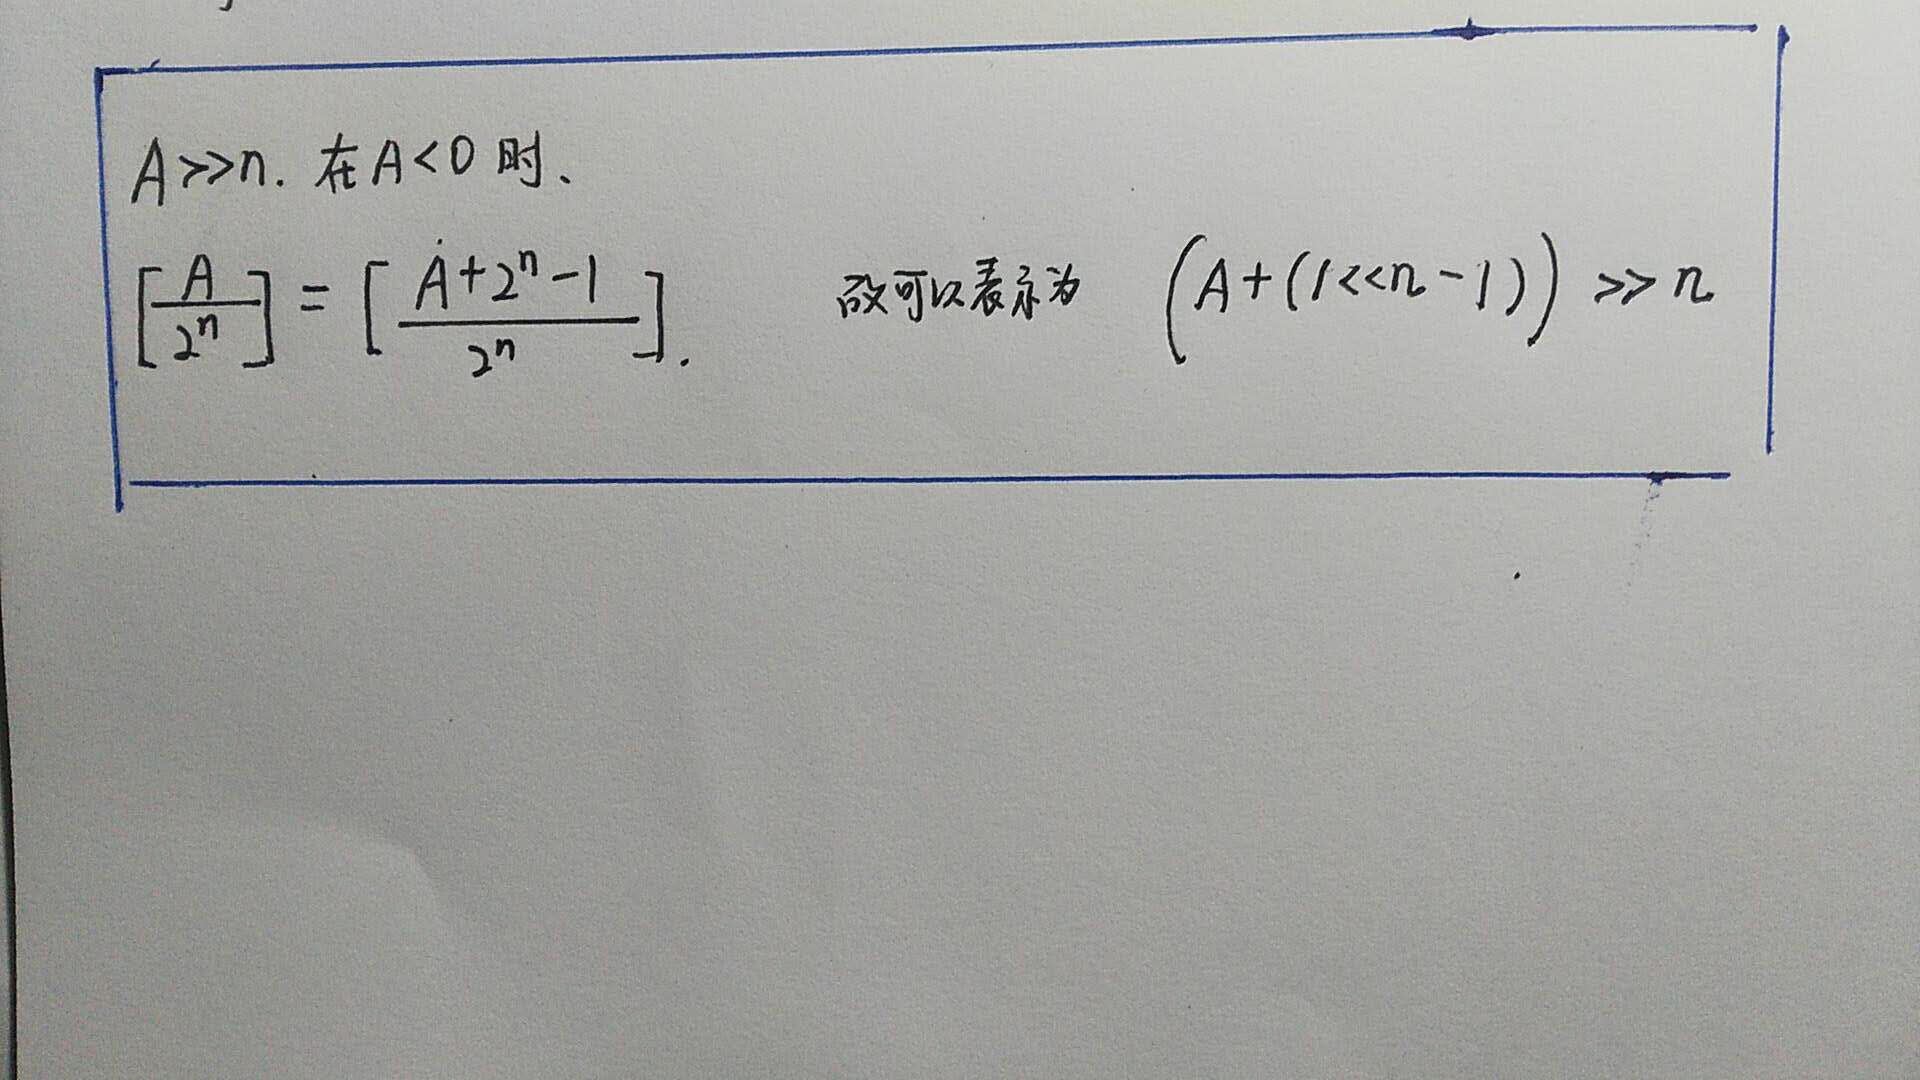 A>>n. 在A<0时、
[A/2ⁿ] = [(A+2ⁿ-1)/2ⁿ]. 故可以表示为 (A+(1<<n-1))>>n